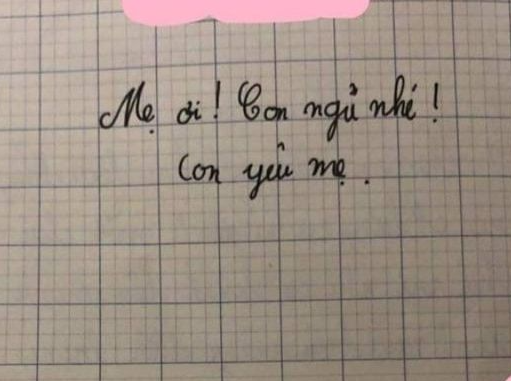 Mẹ ơi! Con ngủ nhé!
Con yêu mẹ.